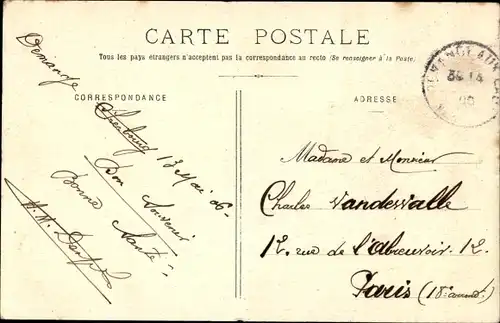 CARTE POSTALE
Tous les pays étrangers n'acceptent pas la correspondance au recto (Se renseigner à la Poste.
CORRESPONDANCE
ADRESSE
13 Mai 06-
Bon Souvenir
Bonne
Santé
Madame et Monsieur
Charles Vandewalle
12. rue de l'abreuvoir. 12.
Paris (18e